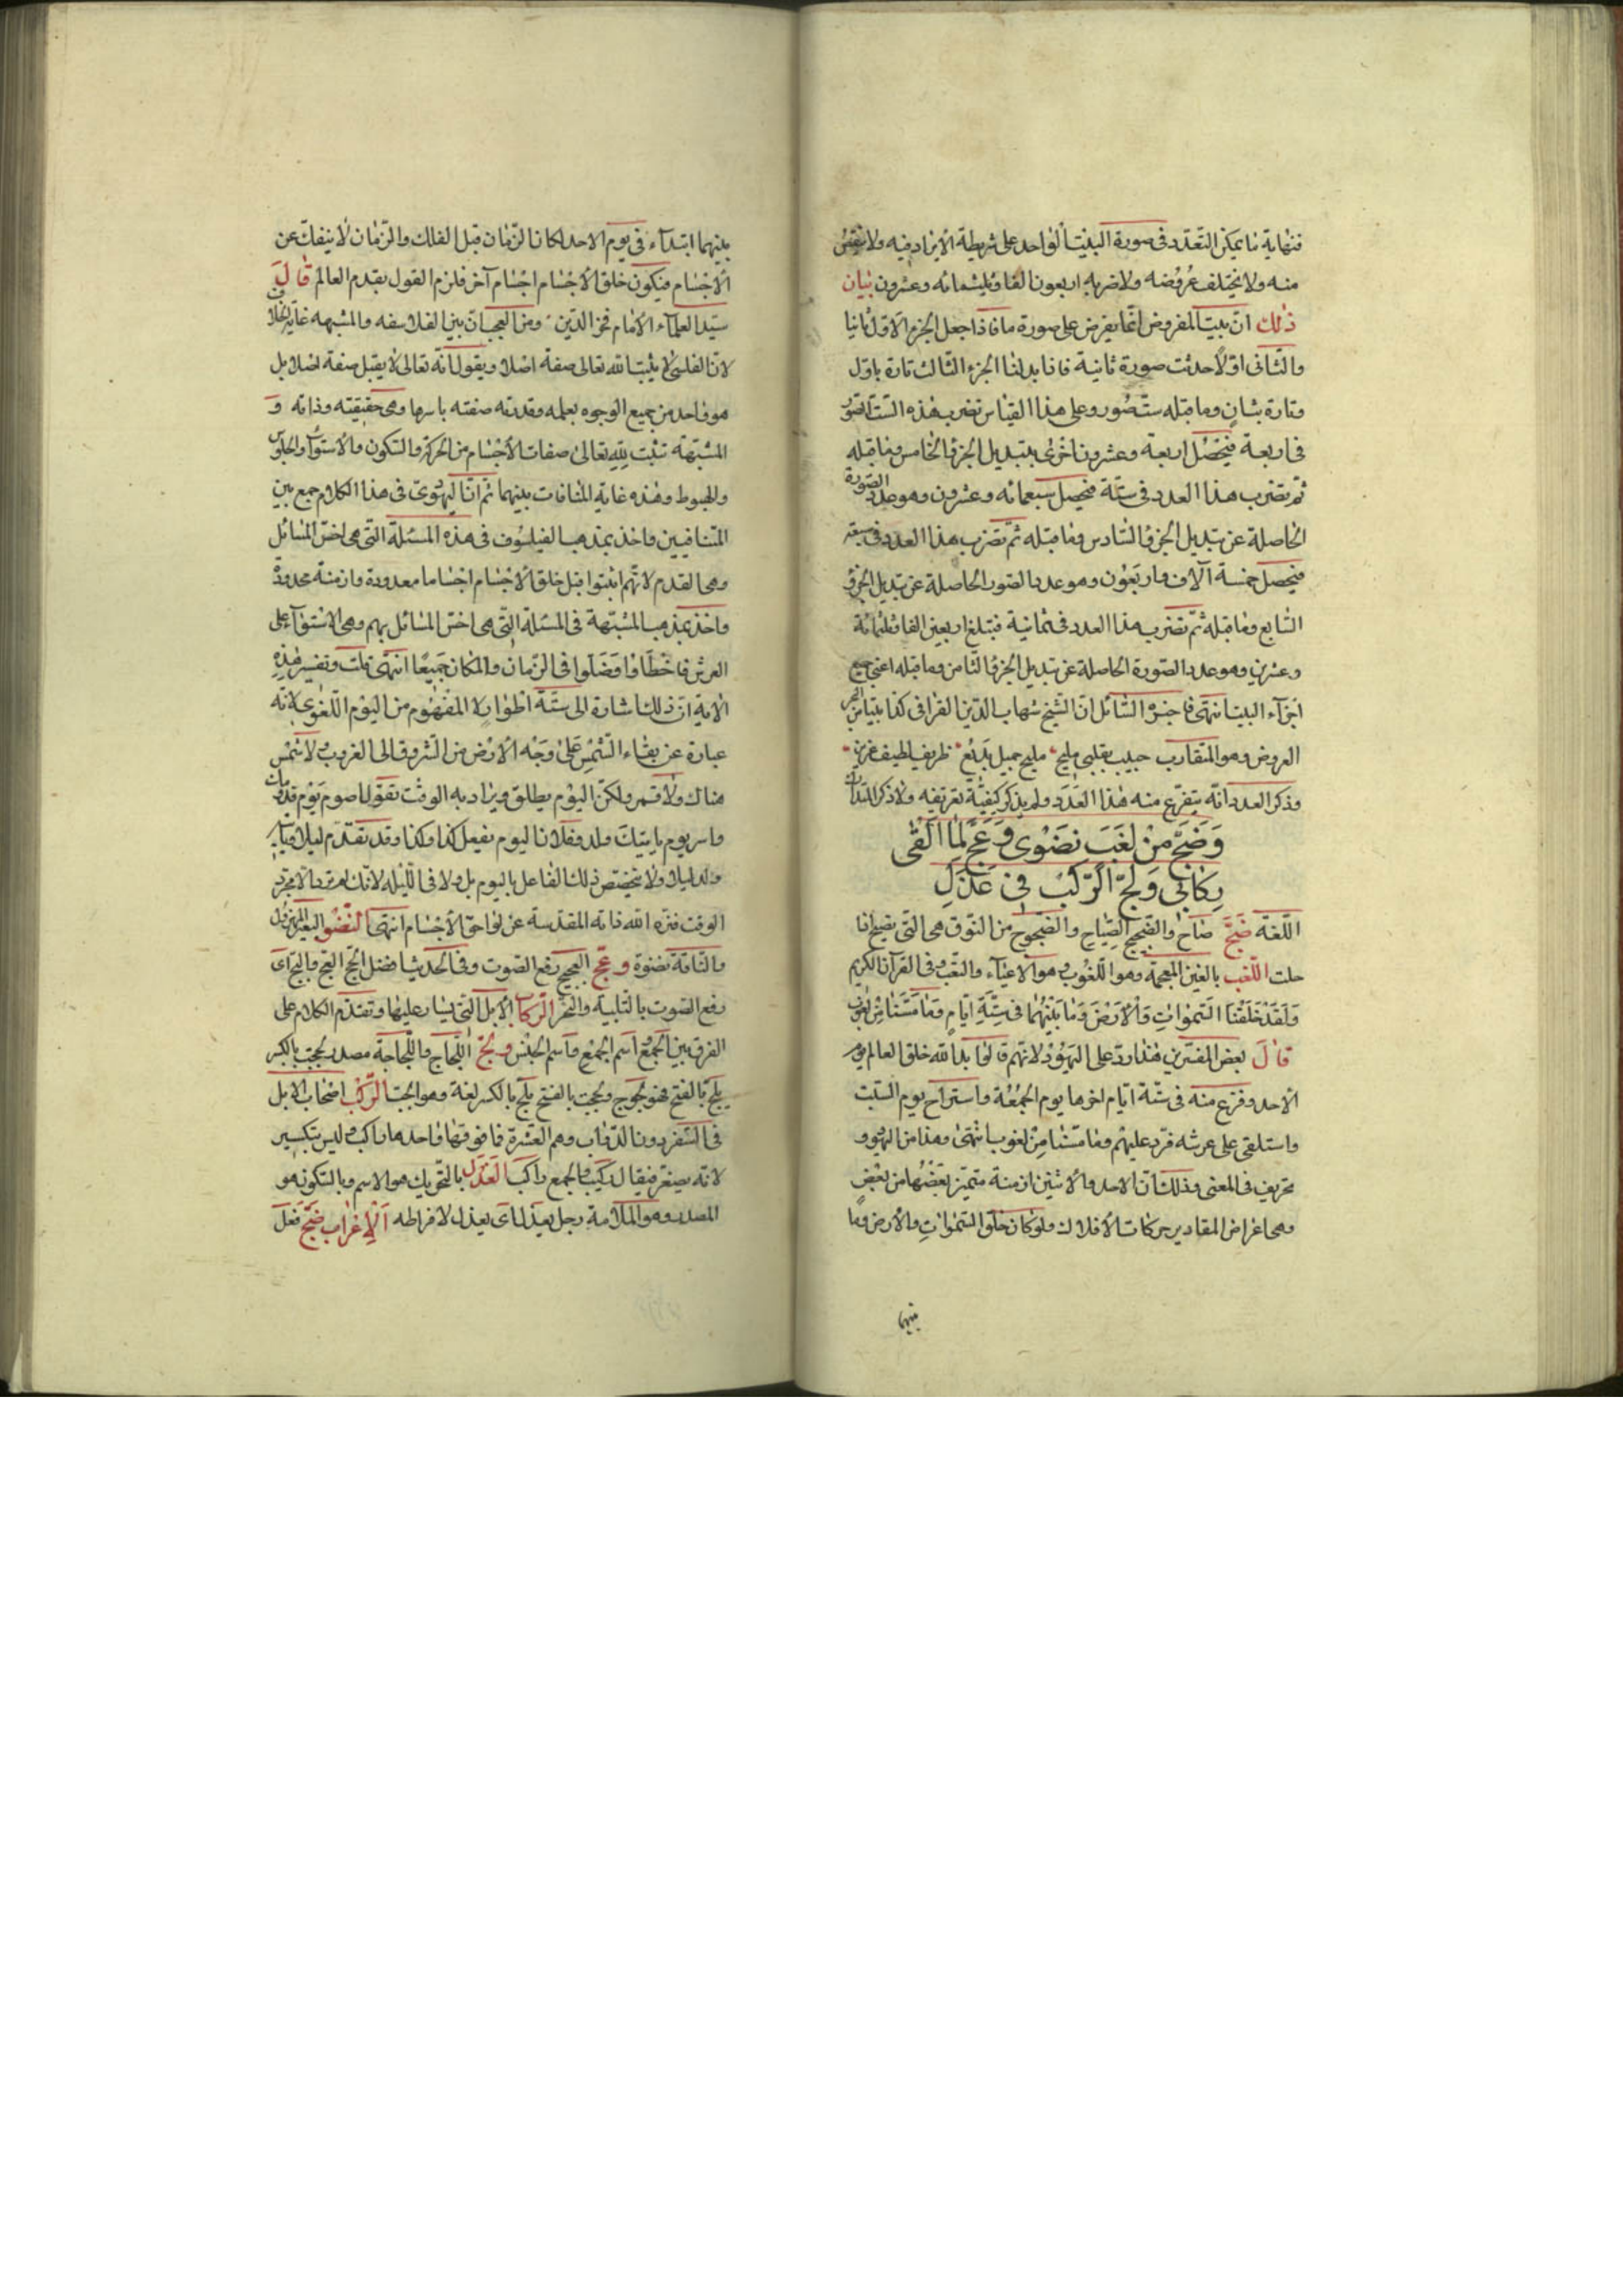 فنهاية ما يمكن التعدد فى صورة البيت الواحد على شريطة الا يزاد فيه ولا ينقص
منه ولا يختلف عروضه ولا ضربه اربعون الفا وثلثمائه وعشرون بيان
ذلك ان بيت المفروض انما يفرض على صورة ما فاذا جعل الجزء الاول ثانيا
والثانى اولا حدثت صورة ثانية فاذا بدلنا الجزء الثالث تارة باول
وتارة بثان وما قبله ست صور وعلى هذا القياس تضرب هذه الست الصور
فى اربعة فيحصل اربعة وعشرون اخرى بتبديل الجزو الخامس وما قبله
ثم تضرب هذا العدد فى ستة فيحصل سبعمائه وعشرون وهو عدد الصورة
الحاصلة عن تبديل الجزو السادس وما قبله ثم تضرب هذا العدد فى سبعة
فيحصل خمسة آلاف واربعون وهو عدد الصور الحاصلة عن تبديل الجزو
السابع وما قبله ثم تضرب هذا العدد فى ثمانية فتبلغ اربعين الفا وثلثمائة
وعشرين وهو عدد الصورة الحاصلة عن تبديل الجزو الثامن وما قبله اعنى جميع
اجزاء البيت انتهى فاخبرة السائل ان الشيخ شهاب الدين القرافى كذا بيتا من بحر
العروض وهو المتقارب حبيب بقلبى مليح مليح جميل بديع ظريف لطيف غريب
وذكر العدد انه يتفرع منه هذا العدد ولم يذكر كيفية تعريفه ولا ذكر التدارك
وَضَجَّ مِنْ لَغَبٍ نِضْوِى وَعَجَّ لِمَا اَلْقَى
رِكَابِى وَلَجَّ الرَّكْبُ فِى عَذَلِى
اللغة ضج صاح والضجيج الصياح والضجوج من النوق هى التى تضج اذا
حلبت اللغب بالغين المعجمة وهو اللغوب وهو الاعياء والتعب وفى القرآن الكريم
وَلَقَدْ خَلَقْنَا السَّمٰوَاتِ وَالْأَرْضَ وَمَا بَيْنَهُمَا فِى سِتَّةِ اَيَّامٍ وَمَا مَسَّنَا مِنْ لُغُوبٍ
قال بعض المفسرين هذا رد على اليهود لانهم قالوا بدأ الله خلق العالم يوم
الاحد وفرغ منه فى ستة ايام اخرها يوم الجمعة واستراح يوم السبت
واستلقى على عرشه فرد عليهم وما مسنا من لغوب انتهى وهذا من اليهود
تحريف فى المعنى وذلك ان الاحد والاثنين ازمنة متميز بعضها من بعض
وهى اعراض المقادير حركات الافلاك ولو كان خلق السموات والارض وما
بينهما
بينهما ابتداء فى يوم الاحد لكان الزمان قبل الفلك والزمان لا ينفك عن
الاجسام فيكون خلق الاجسام اجسام آخر فلزم القول بقدم العالم قال
سيد العلماء الامام فخر الدين ومن العجب ان بين الفلاسفه والمشبهه غاية الخلاف
لان الفلسفى لا يثبت لله تعالى صفة اصلا ويقول انه تعالى لا يقبل صفة اصلا بل
هو واحد من جميع الوجوه بعلمه وقدرته صفته باسرها وهى حقيقته وذاته و
المشبهة تثبت لله تعالى صفات الاجسام من الحركة والسكون والاستواء والجلوس
والهبوط وهذه غاية المنافات بينهما ثم ان اليهودى فى هذا الكلام جمع بين
المتنافيين واخذ بمذهب الفيلسوف فى هذه المسئلة التى هى اخص المسائل
وهى القدم لانهم اثبتوا قبل خلق الاجسام اجساما معدودة وازمنة محدودة
واخذ بمذهب المشبهة فى المسئلة التى هى اخص المسائل بهم وهى الاستواء على
العرش فاخطاؤا وضلوا فى الزمان والمكان جميعا انتهى قلت وتفسير هذه
الاية ان ذلك اشارة الى ستة اطوار لا المفهوم من اليوم اللغوى لانه
عبارة عن بقاء الشمس على وجه الارض من الشروق الى الغروب ولا شمس
هناك ولا قمر ولكن اليوم يطلق ويراد به الوقت تقول صوم يوم قد مات
واسر يوم ياتيك ولد وفلان اليوم يفعل كذا وكذا وقد تقدم ليلا ويات
ولد ليلا ولا يختص ذلك الفاعل باليوم بل ولا فى الليله لانك لم ترد الا مجرد
الوقت فنزه الله ذاته المقدسة عن لواحق الاجسام انتهى النضو البعير المهزول
والناقة نضوة وعج العجيج رفع الصوت وفى الحديث افضل الحج العج والثج اى
رفع الصوت بالتلبية والنحر الركاب الابل التى يسار عليها وتقدم الكلام على
الفرق بين الجمع اسم الجمع واسم الجنس ولج اللجاج واللجاجة مصدر لججت بالكسر
يلج بالفتح فهو لجوج ولججت بالفتح يلج بالكسر لغة وهو الجبت الركب اصحاب الابل
فى السفر دون الدواب وهم العشرة فما فوقها واحدها راكب وليس بتكسير
لانه يصغر فيقال ركيب والجمع راكب العذل بالتحريك هو الاسم وبالسكون هو
المصدر وهو الملامة رجل يعذل اى يعذل لافراطه الاعراب ضج فعل